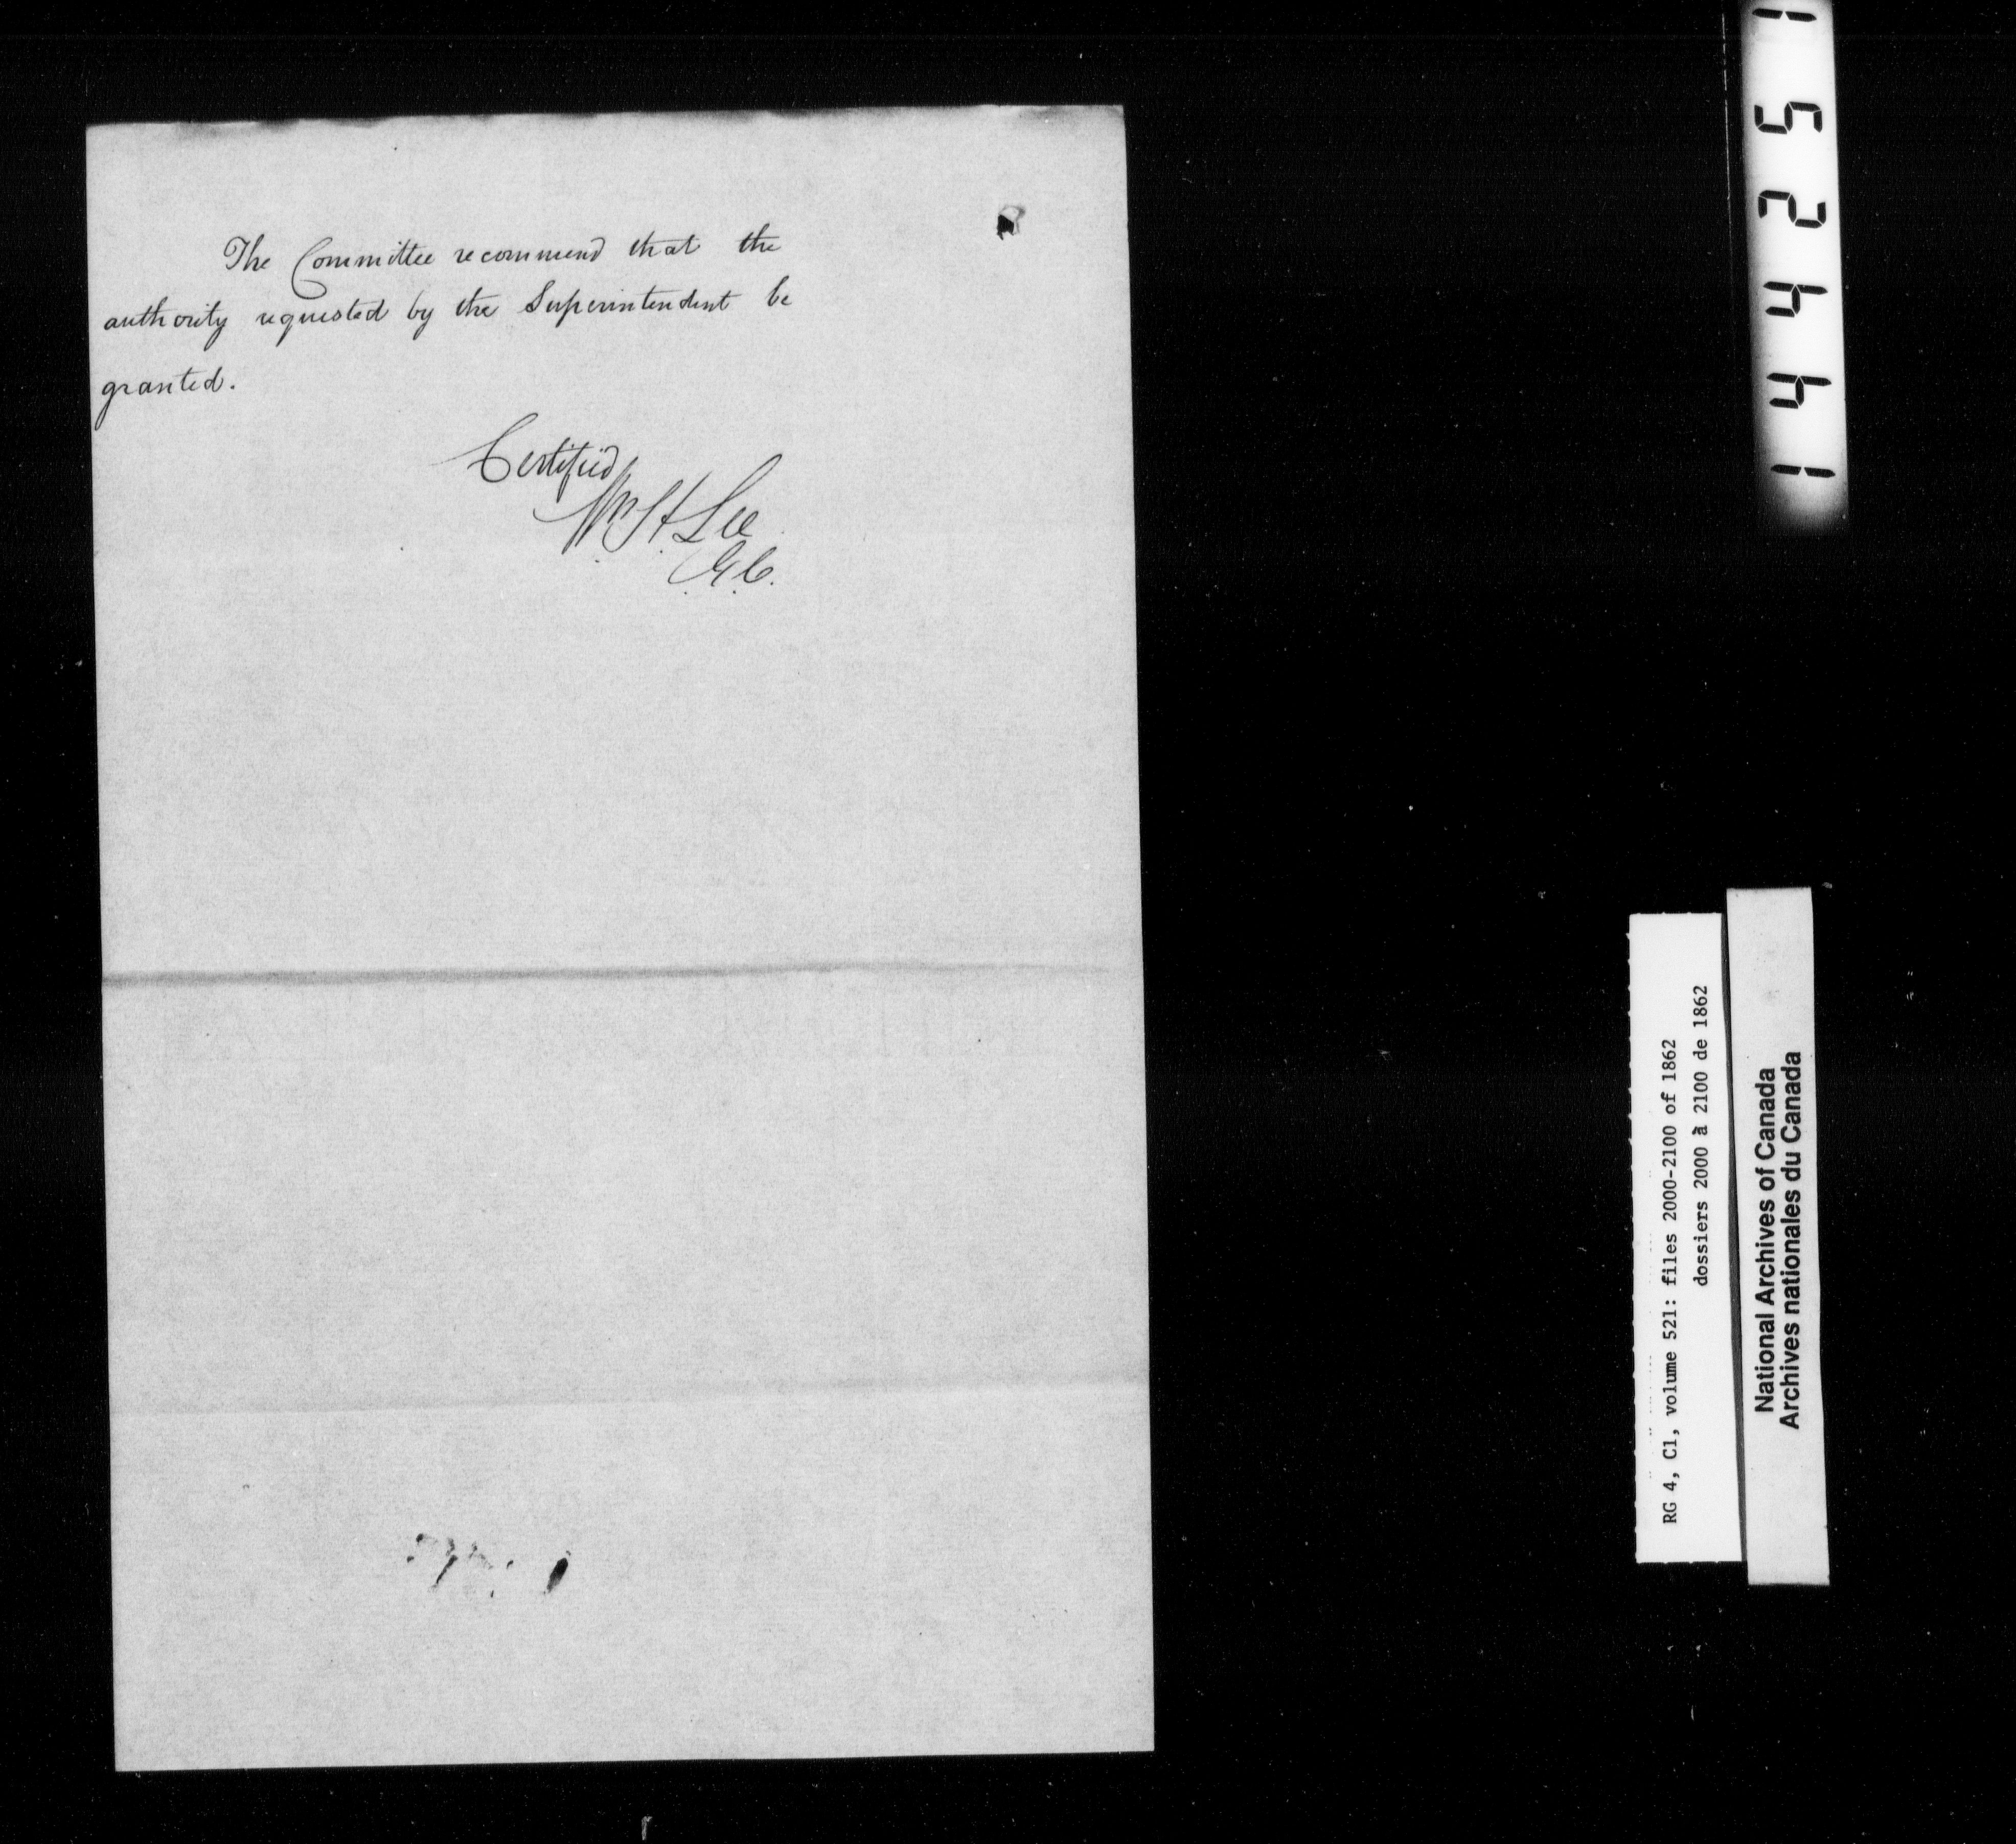 The Committee recommend that the
authority requested by the Superintendent be
granted.
Certified
Wm H Lee
C.E.C.
RG 4, C1, volume 521: files 2000-2100 of 1862
dossiers 2000 à 2100 de 1862
National Archives of Canada
Archives nationales du Canada
152441